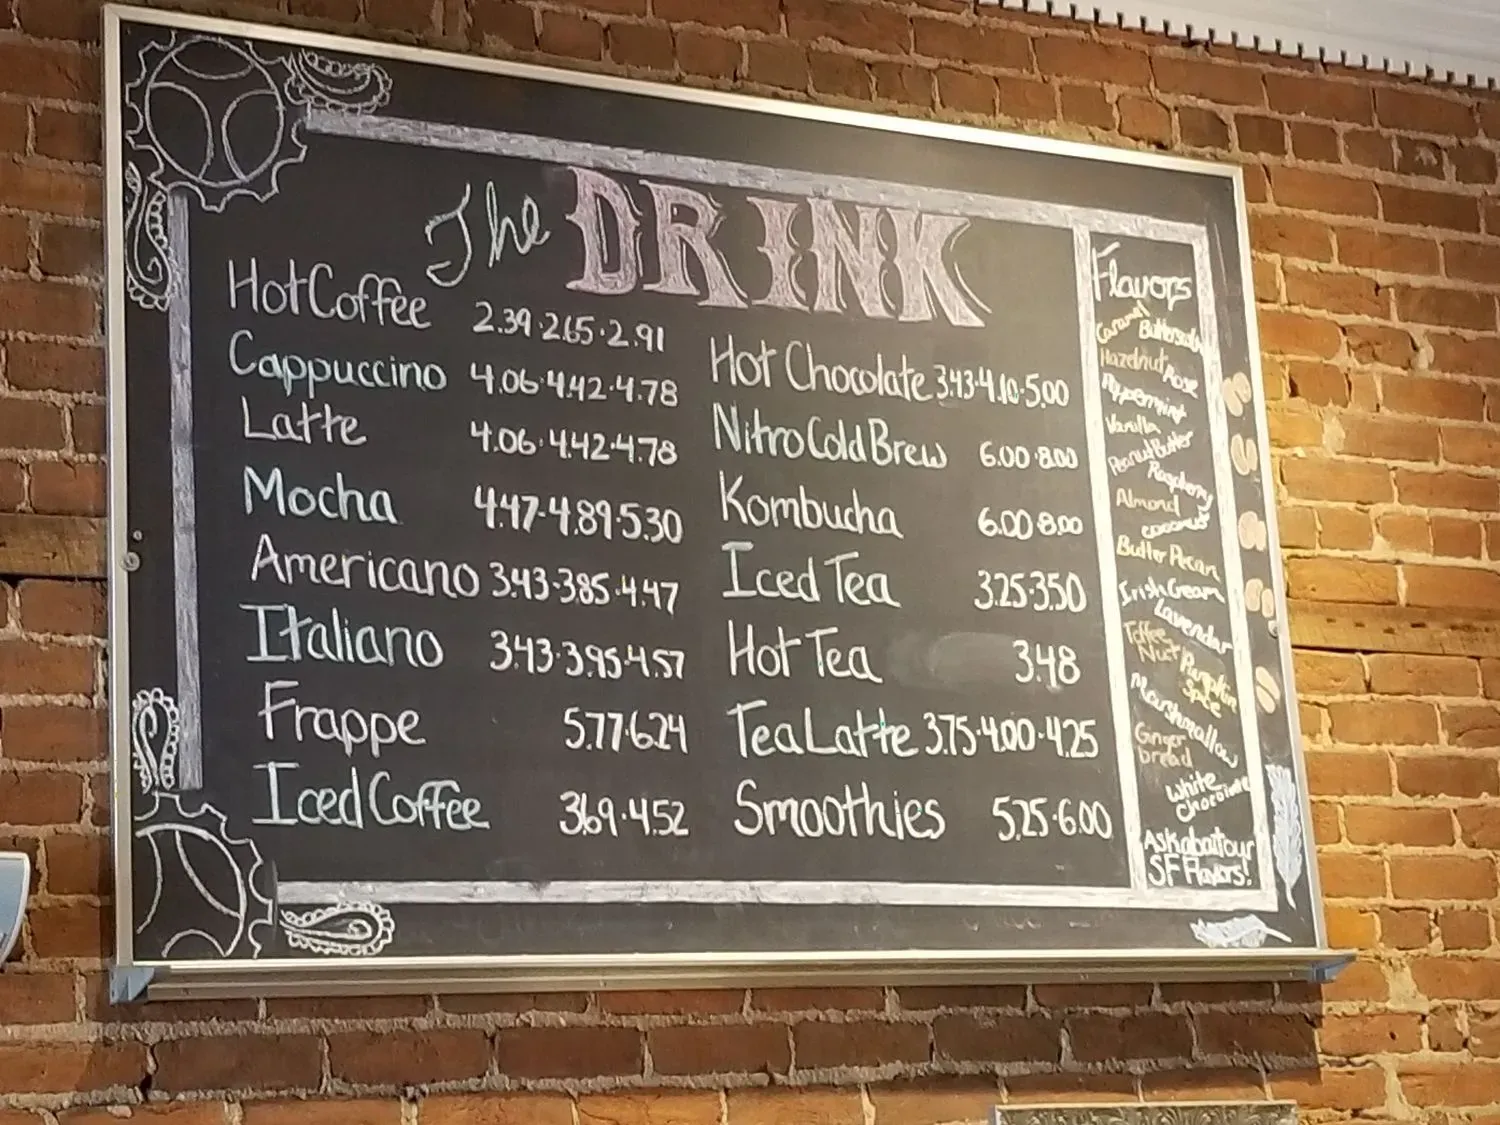 The DRINK
Hot Coffee 2.39·2.65·2.91
Cappuccino 4.06·4.42·4.78
Latte 4.06·4.42·4.78
Mocha 4.47·4.89·5.30
Americano 3.43·3.85·4.47
Italiano 3.43·3.95·4.57
Frappe 5.77·6.24
Iced Coffee 3.69·4.52
Hot Chocolate 3.43·4.10·5.00
Nitro Cold Brew 6.00·8.00
Kombucha 6.00·8.00
Iced Tea 3.25·3.50
Hot Tea 3.48
Tea Latte 3.75·4.00·4.25
Smoothies 5.25·6.00
Flavors
Caramel
Hazelnut
Rose
Peppermint
Vanilla
Peanut Butter
Raspberry
Almond
coconut
Butter Pecan
Irish Cream
Lavendar
Toffee
Nut
Pumpkin
Spice
Marshmallow
Ginger
bread
White
chocolate
Ask about our
SF Flavors!